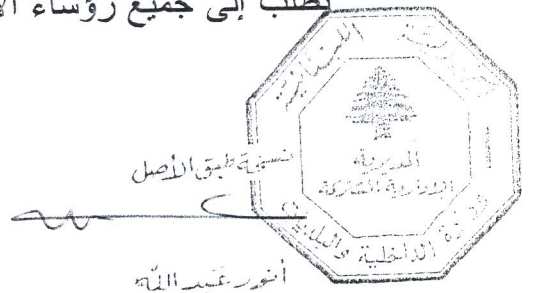 نطلب إلى جميع رؤساء
الجمهورية اللبنانية
المديرية
الإدارية المشتركة
وزارة الداخلية والبلديات
نسخة طبق الأصل
أنور عبد الله